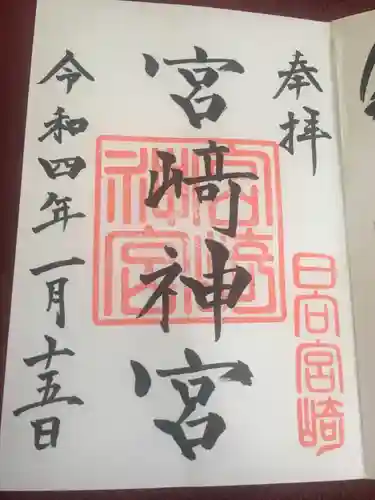 奉拝
日向宮崎
宮﨑神宮
宮崎神宮
令和四年一月十五日